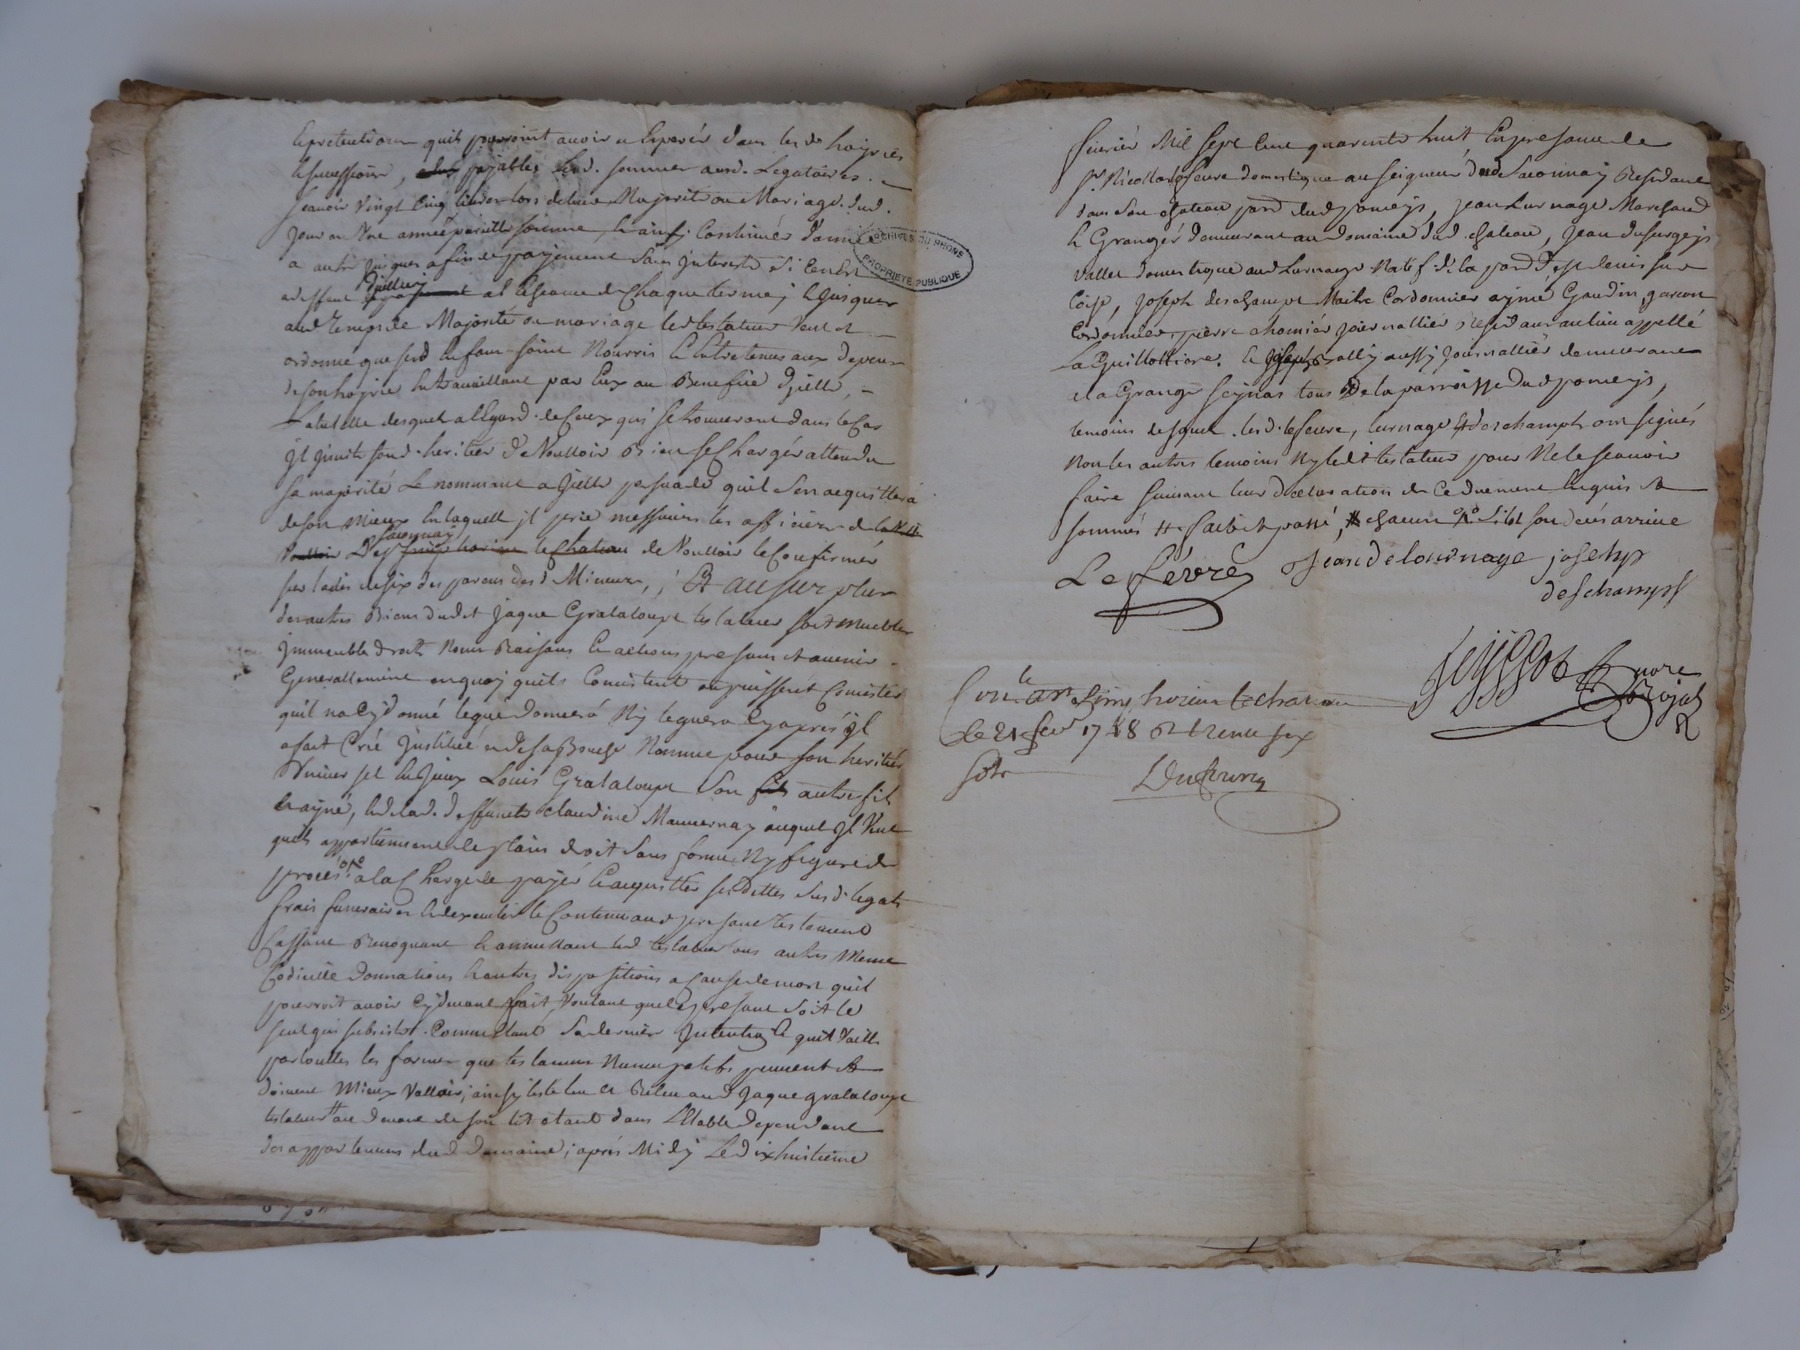 & pretentions quils pouroint avoir a Esperér dans les d. hoyries
& successions, payables lesd. sommes ausd. Legataires
scavoir Vingt Cinq livres lors de leur Majorité ou Mariage dud.
jour en Une année pareille somme, & ainsy Continuér d'année
a autre jusques a fin de payement sans jnterests si Ce n'est
a deffaut d'jcelluy al Escance de Chaque terme, & jusques
aud. temps de Majorité ou mariage led. testateur Veut et
ordonne que sesd. Enfans soint Nourris & Entretenus aux depens
de son hoyrie En travaillant par Eux au Benefice d'jcelle,
La tutelle desquels a l'Egard de Ceux qui se trouveront dans le Cas
jl jnvite sond. heritier de Voulloir Bien se Chargér attendu
sa majorité Le nommant a jcelle persuadé quil s'en acquittera
de son Mieux En laquelle jl prie messieurs les officiers de
Savonnay
de Voulloir le Confirmér
sur l'advis de six des parens des d. Mineurs, ; Et au surplus
des autres Biens dudit Jaque Grataloupt testateur soit Meubles
jmmeubles droits Noms Raisons & actions presans et avenir
Generallement en quoy quils Consistent ou puissent Consister
quil na Cy donné legué donnera Ny leguera Cy aprés jl
a fait Créé jnstitué et de sa Bouche Nommé pour son heritier
Vniversel En jceux Louis Grataloupt son autre fils
& ayné, & de lad. deffunte Claudine Maunernay auquel jl Veut
quils appartiennent de plain droit sans forme Ny figure de
procés a la Charge de payér & acquitter ses dettes susd. legats
frais funeraires & d'executer le Contenu au presant testament
Cassant Revoquant & annullant led. testateur tous autres Meme
Codicille donnations & autres dispositions a Cause de mort quil
pourroit avoir Cy devant fait, Voulant que le presant soit le
seul qui subsiste Comme Etant sa derniere jntention & quil Vaille
par touttes les formes que testamens Nuncupatifs peuvent Et
doivent Mieux Valloir, ainsy testé leu et Releu aud. Jaque grataloupt
testateur au devant de son lit étant dans L'Etable dependant
des appartenances dud. Domaine, aprés Midy Le dixhuitieme
ARCHIVES DU RHONE
PROPRIETE PUBLIQUE
fevriér Mil sept Cent quarante huit En presance de
sr. Nicollas lefevre domestique au seigneur dud. Savonnay Residant
dans son chateau parr. dud. pomeys, Jean Lurnage Marchand
& Grangér demeurant au Domaine dud. chateau, Jean dusurgeys
vallet domestique aud. Lurnage Natif de la parr. de st. denis sur
Coise, Joseph deschamps Maitre Cordonnier aymé Gaudin garcon
Cordonnier, pierre chomiér journalliér Residant au lieu appellé
La Guillottiere, & Joseph aussy journalliér demeurant
a la Grange seynas tous de la parroisse dud. pomeys,
temoins desquels lesd. lefevre, Lurnage & deschamps ont signés
Non les autres temoins Ny led. testateur pour Ne le scavoir
faire suivant leur declaration de Ce duement Enquis Et
sommés
Le févre
Jean delournage
joseph
deschamps
Nore
Royal
Conle. a st. Simphorien le chateau
le 21 fevr 1748 R trente six
sols